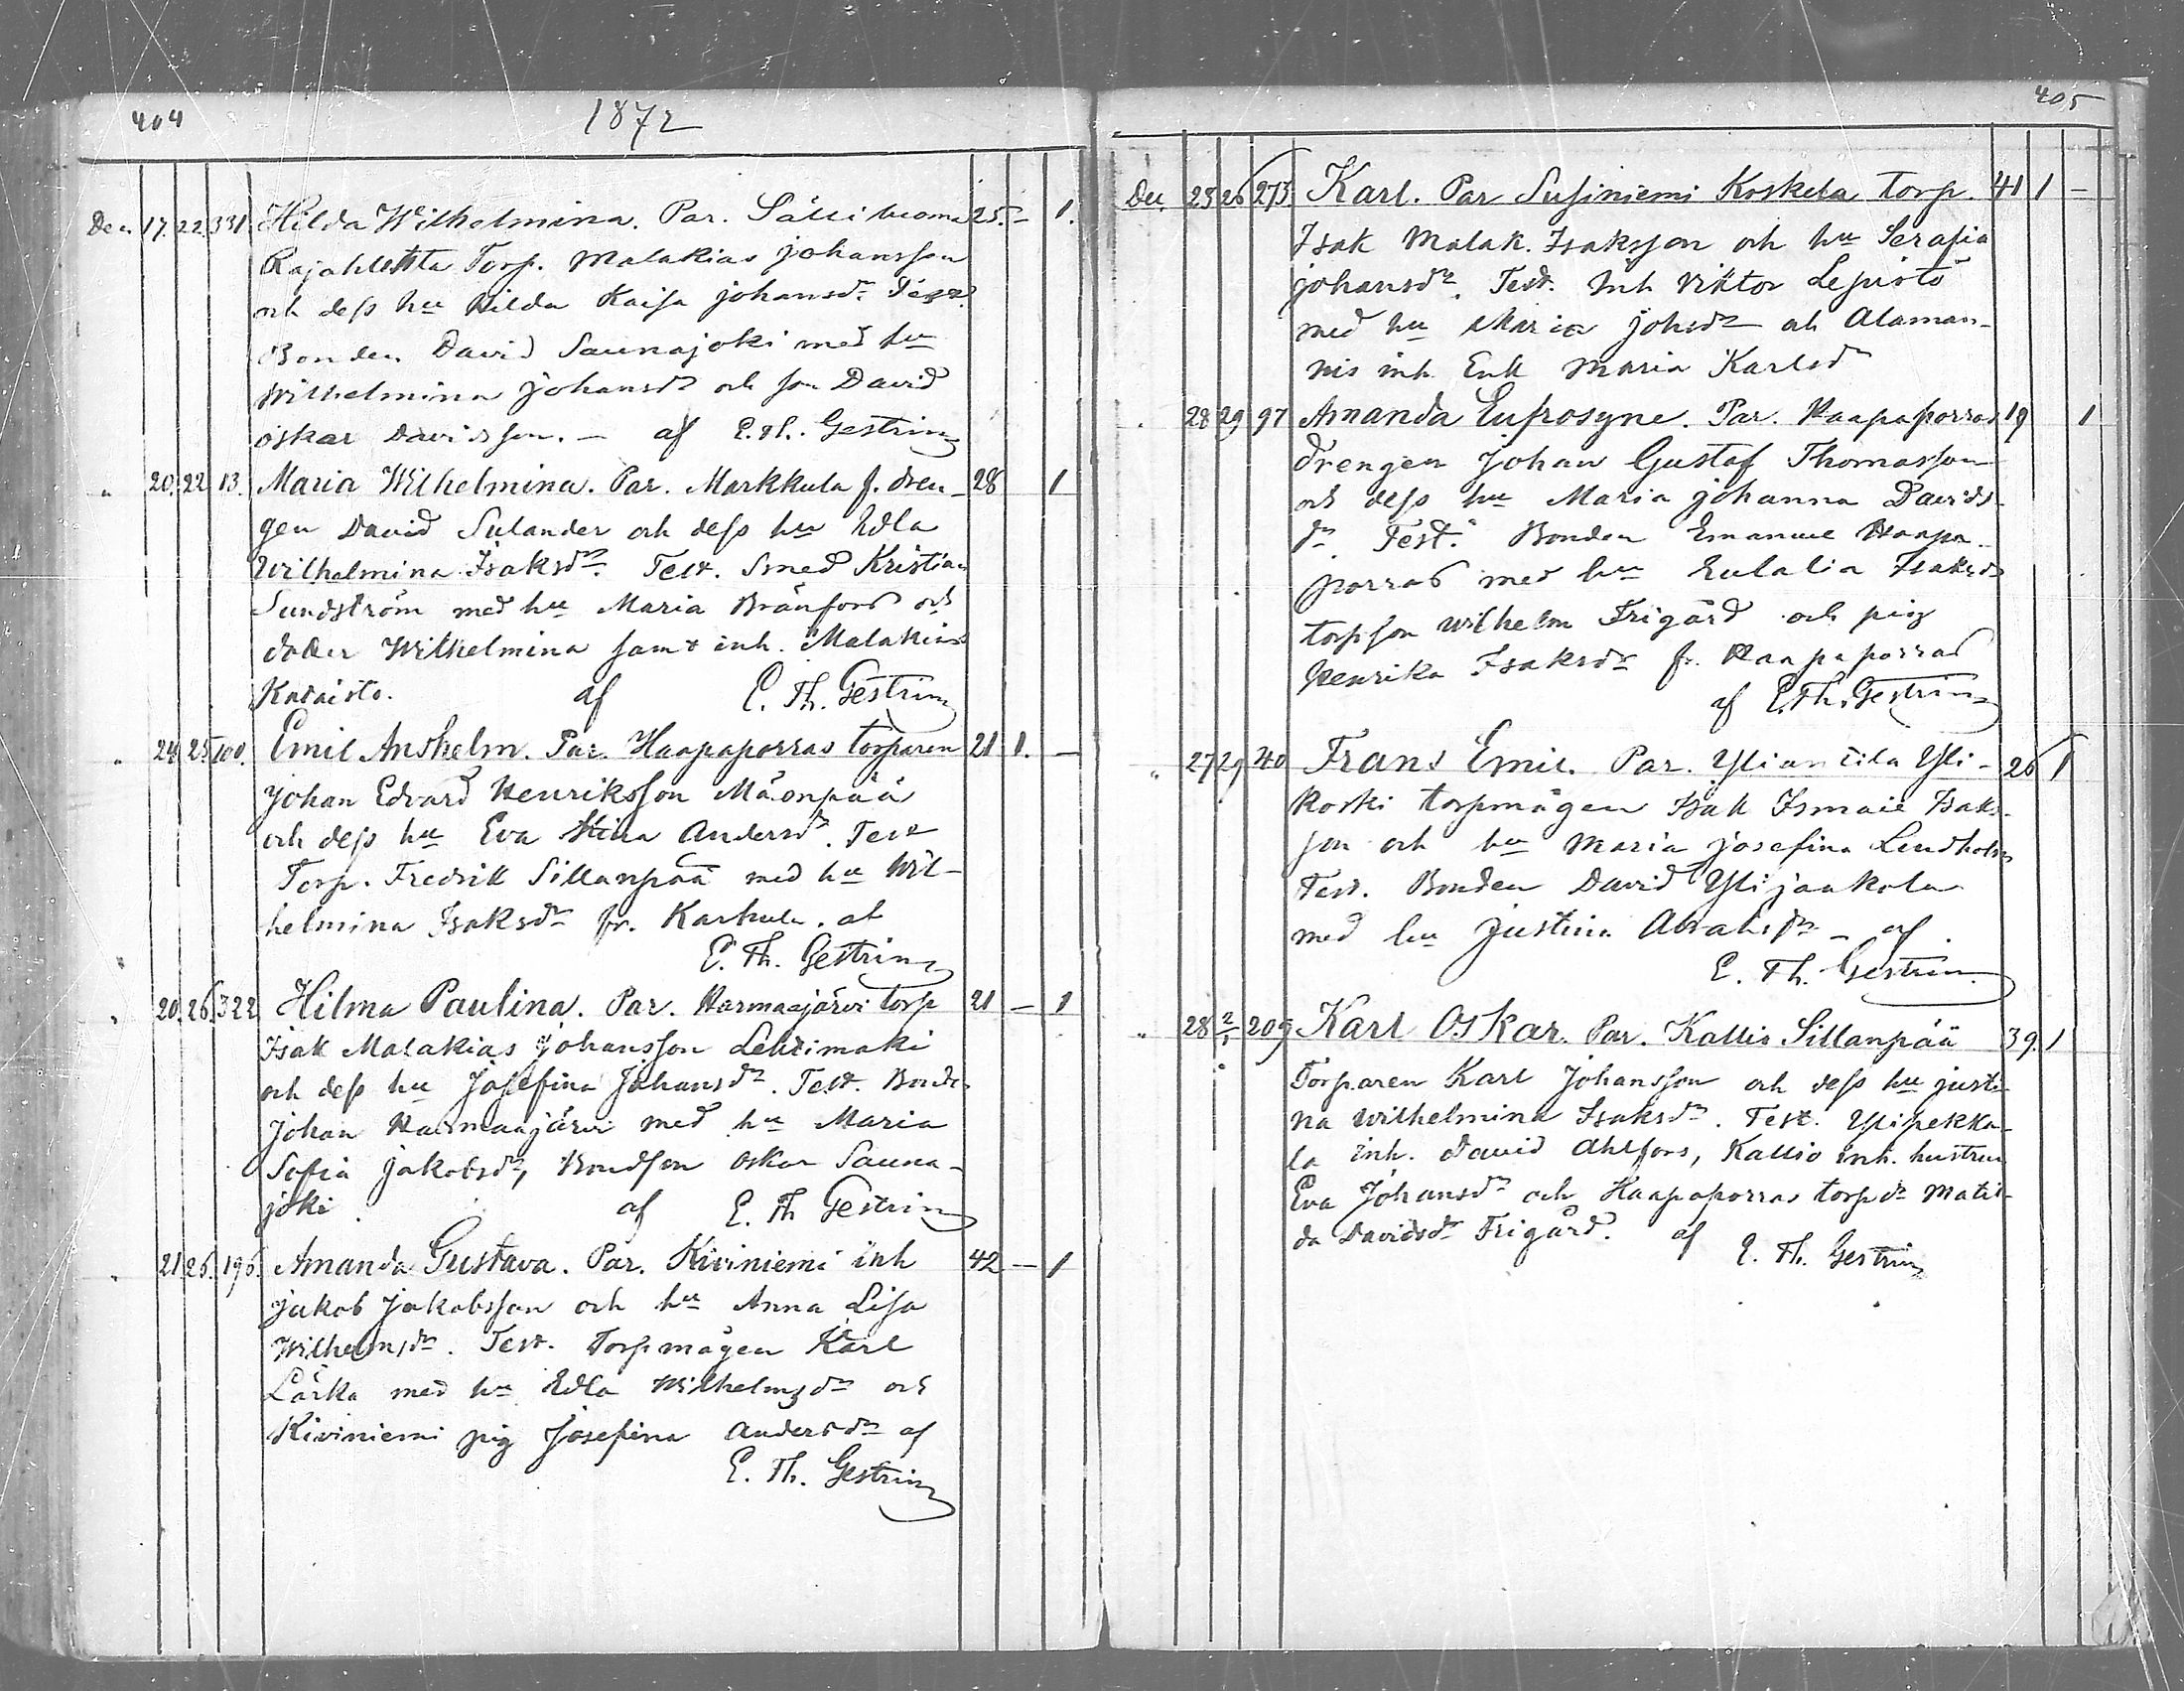 404
1872
Dec. 17. 22. 331. Hilda Wilhelmina. Par. Sälliluoma 25. – 1.
Rajalehtta Torp. Malakias Johansson
och dess hu Hilda Kaisa Johansdr. Test.
Bonden David Saunajoki med hu
Wilhelmina Johansdr och son David
Oskar Davidsson. – af E. Th. Gestrin
" 20. 22 13. Maria Wilhelmina. Par. Markkula f. dren- 28 1
gen David Sulander och dess hu Edla
Wilhelmina Isaksdr. Test. Smed Kristian
Sundström med hu Maria Bränfors och
dotter Wilhelmina samt inh. Malakias
Kataisto. af E. Th. Gestrin
" 24 25. 100. Emil Anshelm. Par. Haapaporras torparen 21 1. –
Johan Edvard Henriksson Mäenpää
och dess hu Eva Stina Andersdr. Test
Torp. Fredrik Sillanpää med hu Wil-
helmina Isaksdr fr. Karhula. af
E. Th. Gestrin
" 20. 26. 322 Hilma Paulina. Par. Harmaajärvi Torp 21 – 1
Isak Malakias Johansson Lehtimäki
och dess hu Josefina Johansdr. Test. Bonde
Johan Harmaajärvi med hu Maria
Sofia Jakobsdr, Bondson Oskar Sauna-
joki af E. Th Gestrin
" 21 26. 196. Amanda Gustava. Par. Kiviniemi inh 42 – 1
Jakob Jakobsson och hu Anna Lisa
Wilhelmsdr. Test. Torpmågen Karl
Lärka med hu Edla Wilhelmsdr och
Kiviniemi pig Josefina Andersdr af
E. Th. Gestrin
405
Dec. 25 26 273. Karl. Par Susiniemi Koskela torp. 41 1 –
Isak Malak. Isaksson och hu Serafia
Johansdr. Test. Inh Viktor Lepistö
med hu Maria Johsdr och Alaman-
nis inh. Enk Maria Karlsdr
" 28 29 97 Amanda Eufrosyne. Par. Haapaporras 19 1
drengen Johan Gustaf Thomasson
och dess hu Maria Johanna Davids-
dr. Test. Bonden Emanuel Haapa-
porras med hu Eulalia Isaksdr
torpson Wilhelm Frigård och pig
Henrika Isaksdr fr. Haapaporras
af E. Th. Gestrin
" 27 29 40 Frans Emil. Par. Yliantila Yli- 26 1
koski torpmågen Isak Ismael Isaks-
son och hu Maria Josefina Lindholm
Test. Bonden David Ylijaakola
med hu Justina Abrahsdr – af
E. Th. Gestrin
" 28 2/1 209 Karl Oskar. Par. Kallio Sillanpää 39. 1
Torparen Karl Johansson och dess hu Justi-
na Wilhelmina Isaksdr. Test. Ylipekka-
la inh. David Ahlfors, Kallio inh. hustrun
Eva Johansdr och Haapaporras torpdr Matil-
da Davidsdr Frigård. af E. Th. Gestrin